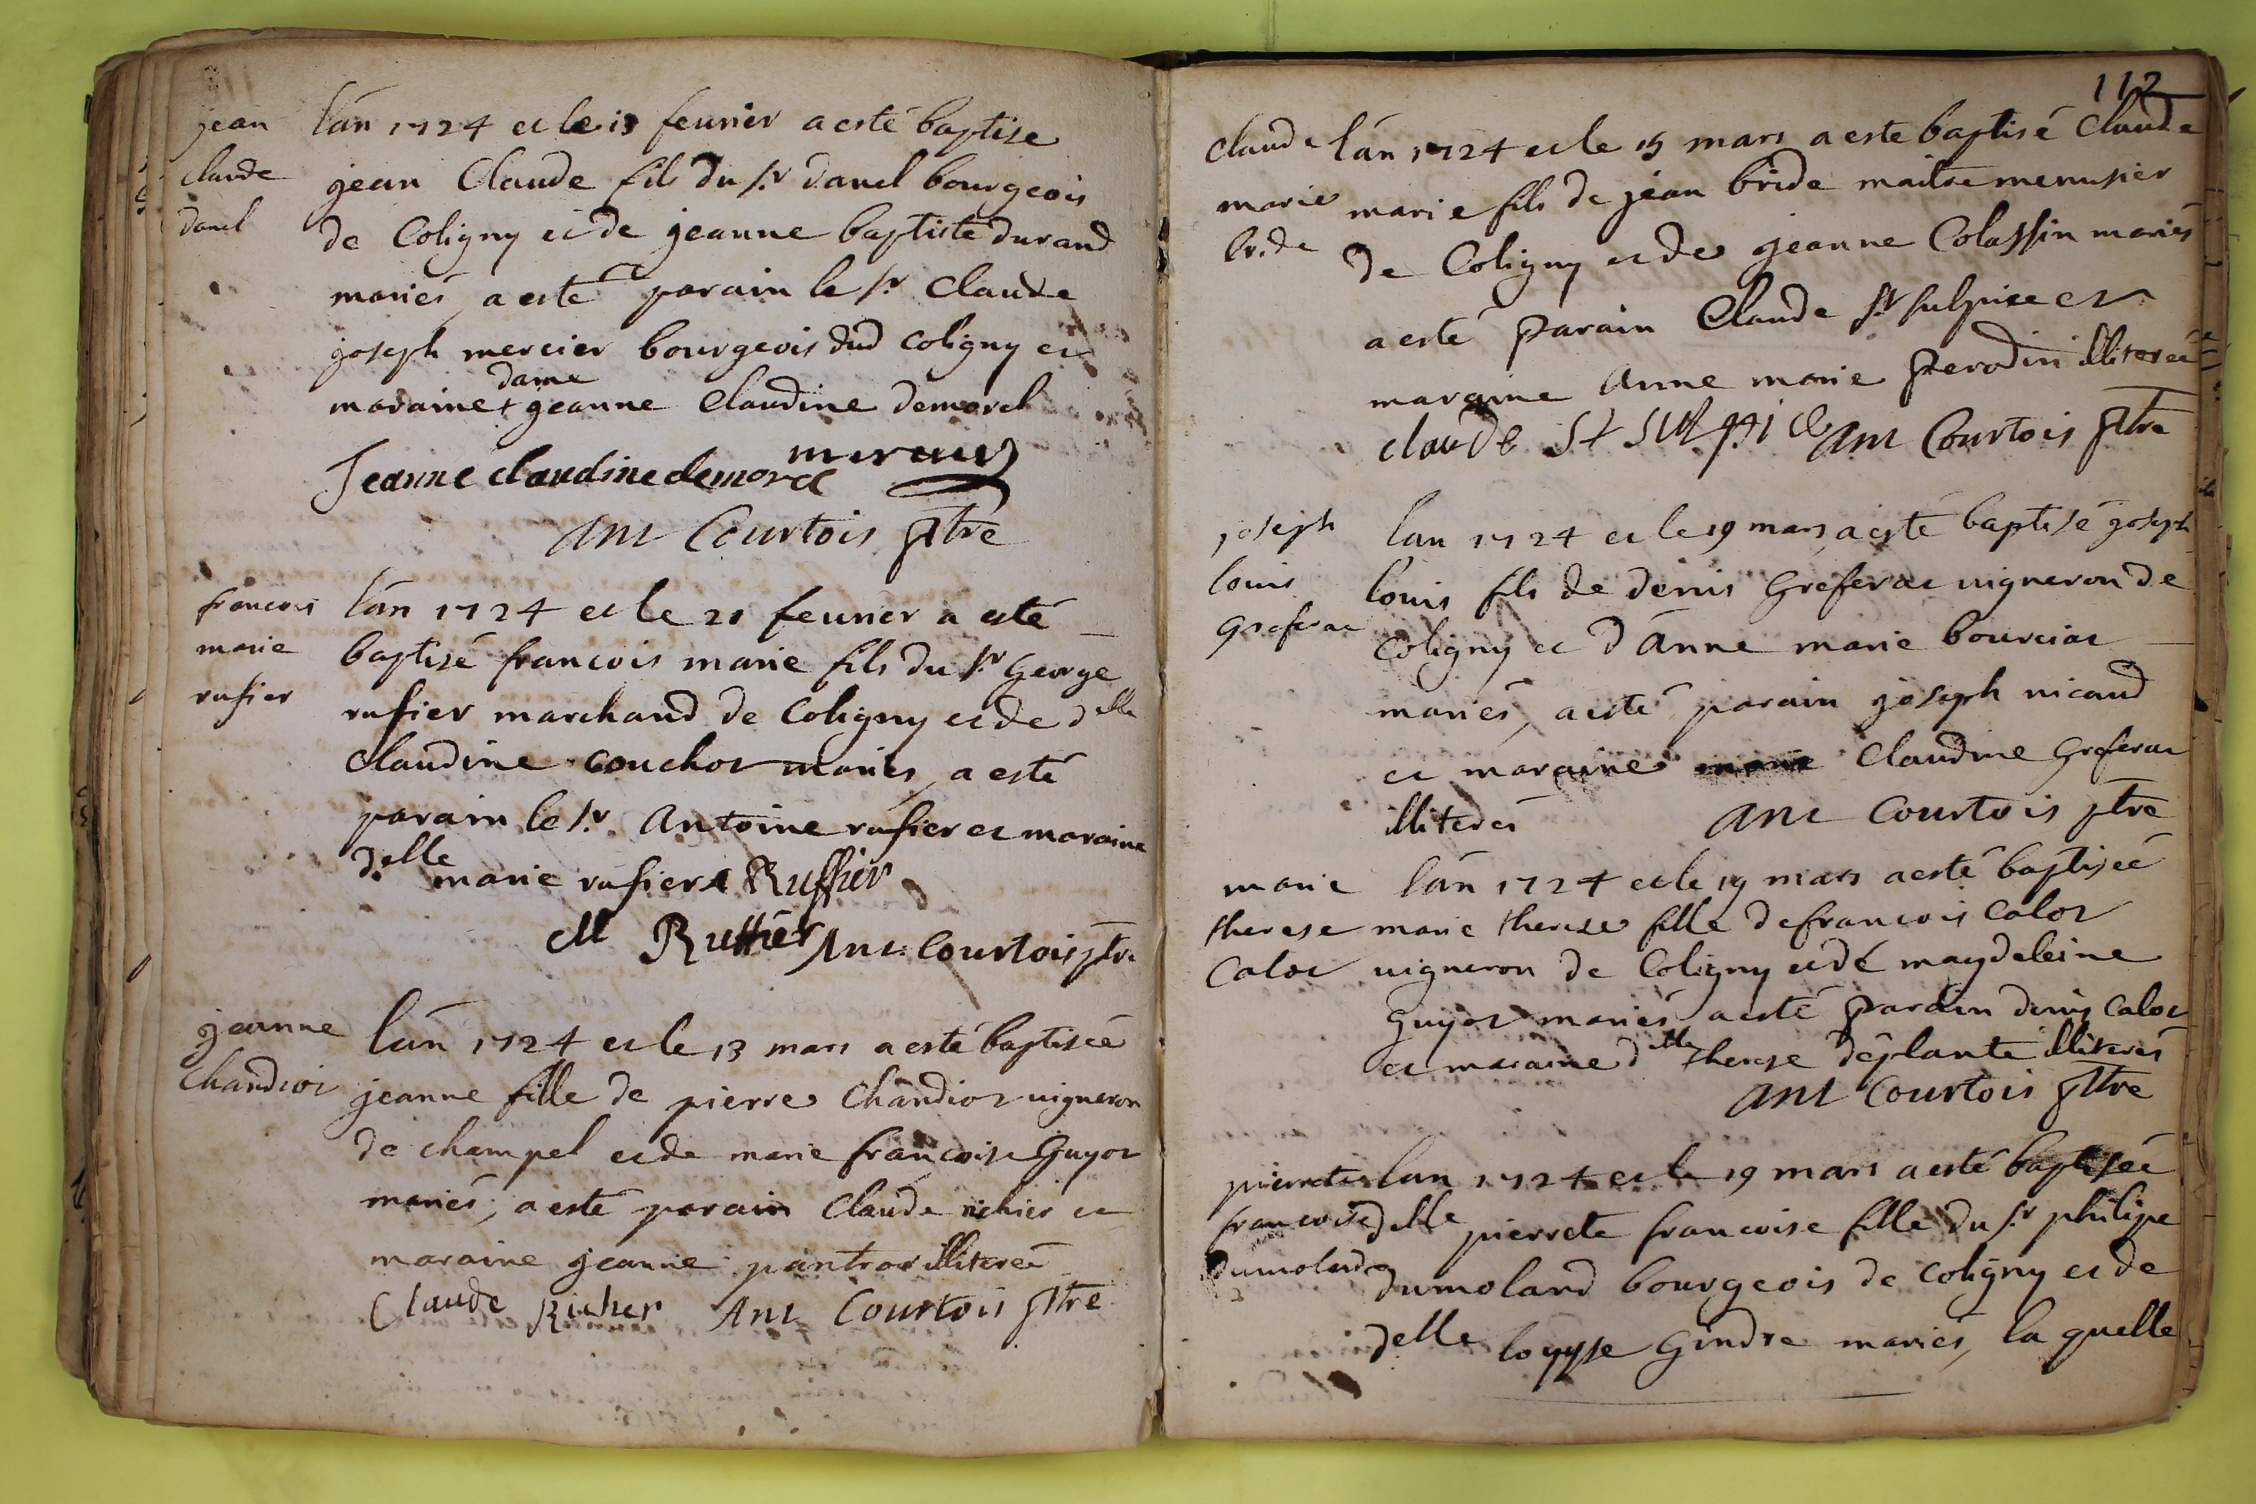 jean
claude
danel
lan 1724 et le 13 feurier a esté baptise
jean Claude fils du sr danel bourgeois
de Coligny et de jeanne baptiste durand
mariés, a esté parain le sr Claude
joseph mercier bourgeois dud coligny et
dame
maraine + jeanne Claudine demorel
Jeanne claudine demorel
Ant Courtois ptre
francois
marie
rufier
lan 1724 et le 21 feurier a esté
baptizé francois marie fils du sr George
rufier marchand de Coligny et de delle
Claudine couchot mariés, a esté
parain le sr Antoine rufier et maraine
delle marie rufier A Ruffier
M Ruffier Ant Courtois ptre
jeanne
Chandiot
lan 1724 et le 13 mars a esté baptiseé
jeanne fille de pierre Chandiot uigneron
de champel et de marie francoise Guyot
mariés, a esté parain Claude richer et
maraine jeanne illitereé
Claude Richer Ant Courtois ptre
112
claude
marie
bride
lan 1724 et le 15 mars a este baptisé Claude
marie fils de jean bride maitre menusier
de Coligny et de jeanne Colassin mariés
a esté parain Claude st sulpice et
maraine Anne marie perodin illitereé
claude St SUlpice Ant Courtois ptre
joseph
louis
Greferat
lan 1724 et le 19 mars, a esté baptisé joseph
louis fils de denis Greferat uigneron de
Coligny et d'Anne marie bourciat
mariés, a esté parain joseph nicaud
et maraine marie Claudine Greferat
illiterés Ant Courtois ptre
marie
therese
Calot
lan 1724 et le 19 mars a esté baptiseé
marie therese fille de francois Calot
uigneron de Coligny et de magdeleine
Guyot mariés a esté parain denis Calot
et maraine delle therese déplante illiterés
Ant Courtois ptre
pierrete
francoise
dumoland
lan 1724 et le 19 mars a esté baptiseé
delle pierrete francoise fille du sr philipe
dumoland bourgeois de coligny et de
delle loyyse Gindre mariés, la quelle